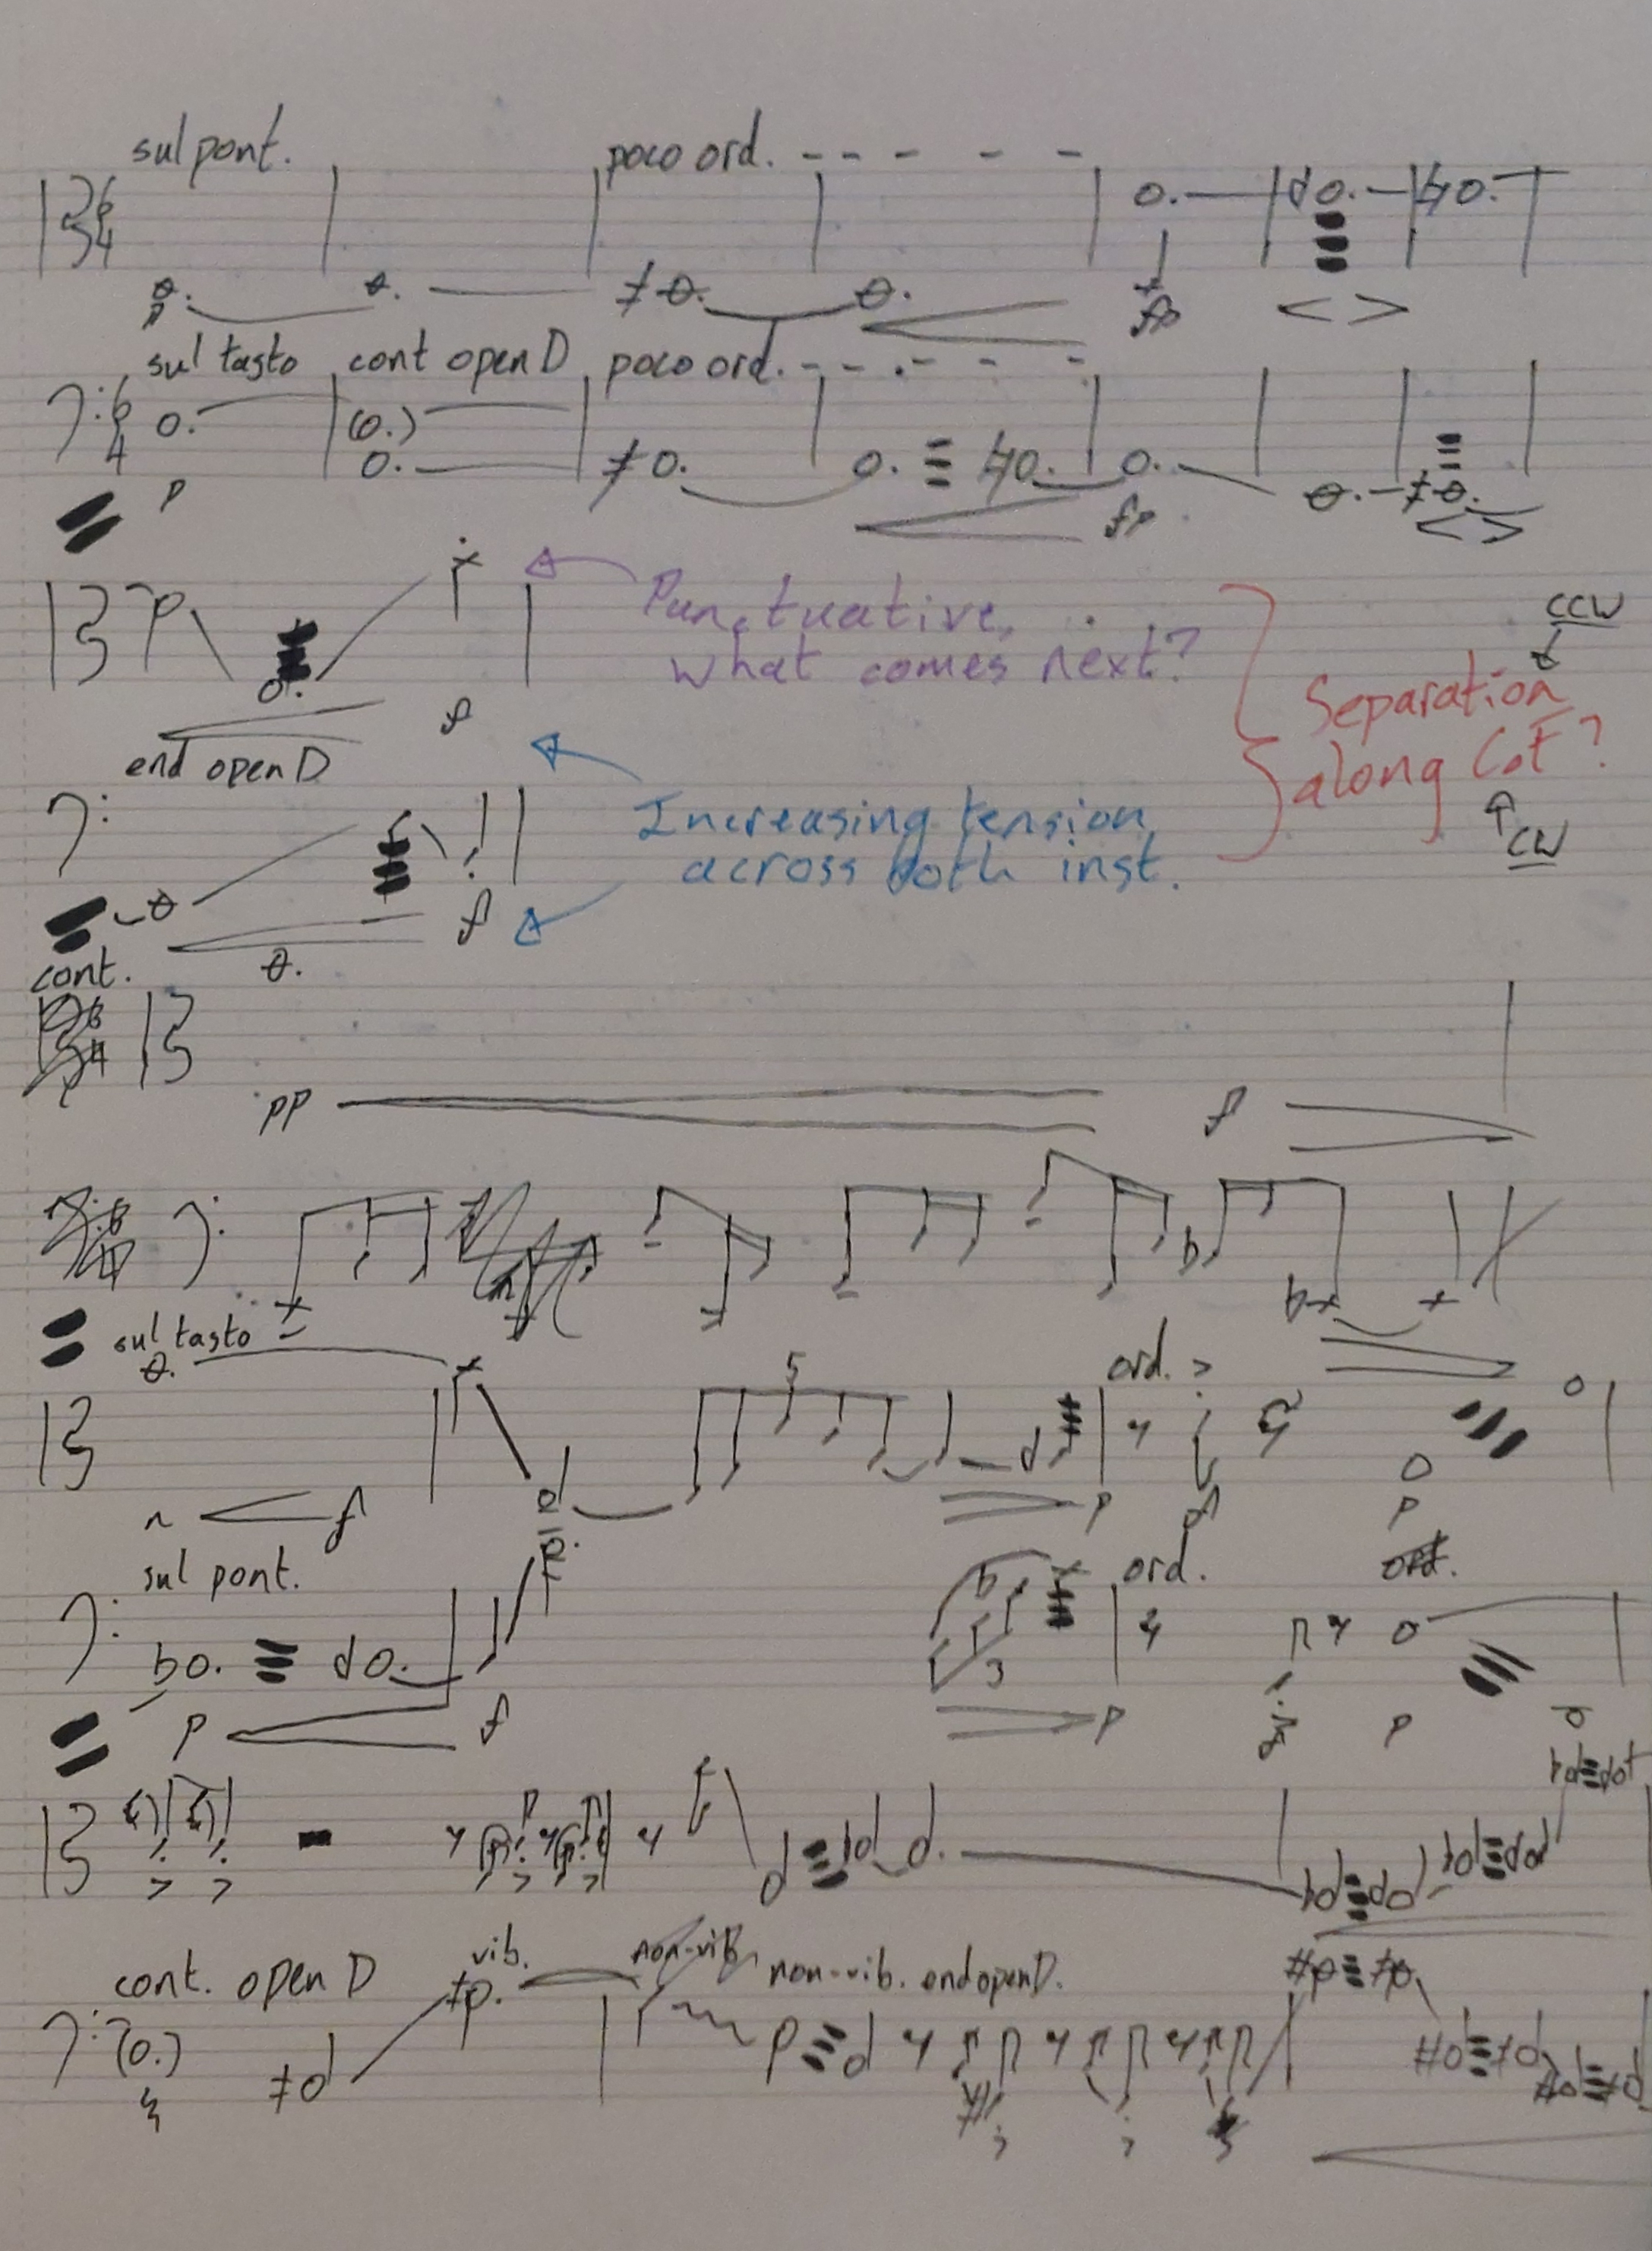 sul pont. poco ord.
6
4
p fp
sul tasto cont open D poco ord.
6
4
p fp
Punctuative,
what comes next?
CCW
Separation
along CoF?
CW
f
end open D
Increasing tension
across both inst.
f
cont.
pp f
sul tasto
5 ord.
n f p f p
sul pont. ord.
3
p f p p
cont. open D vib. non-vib. end open D.